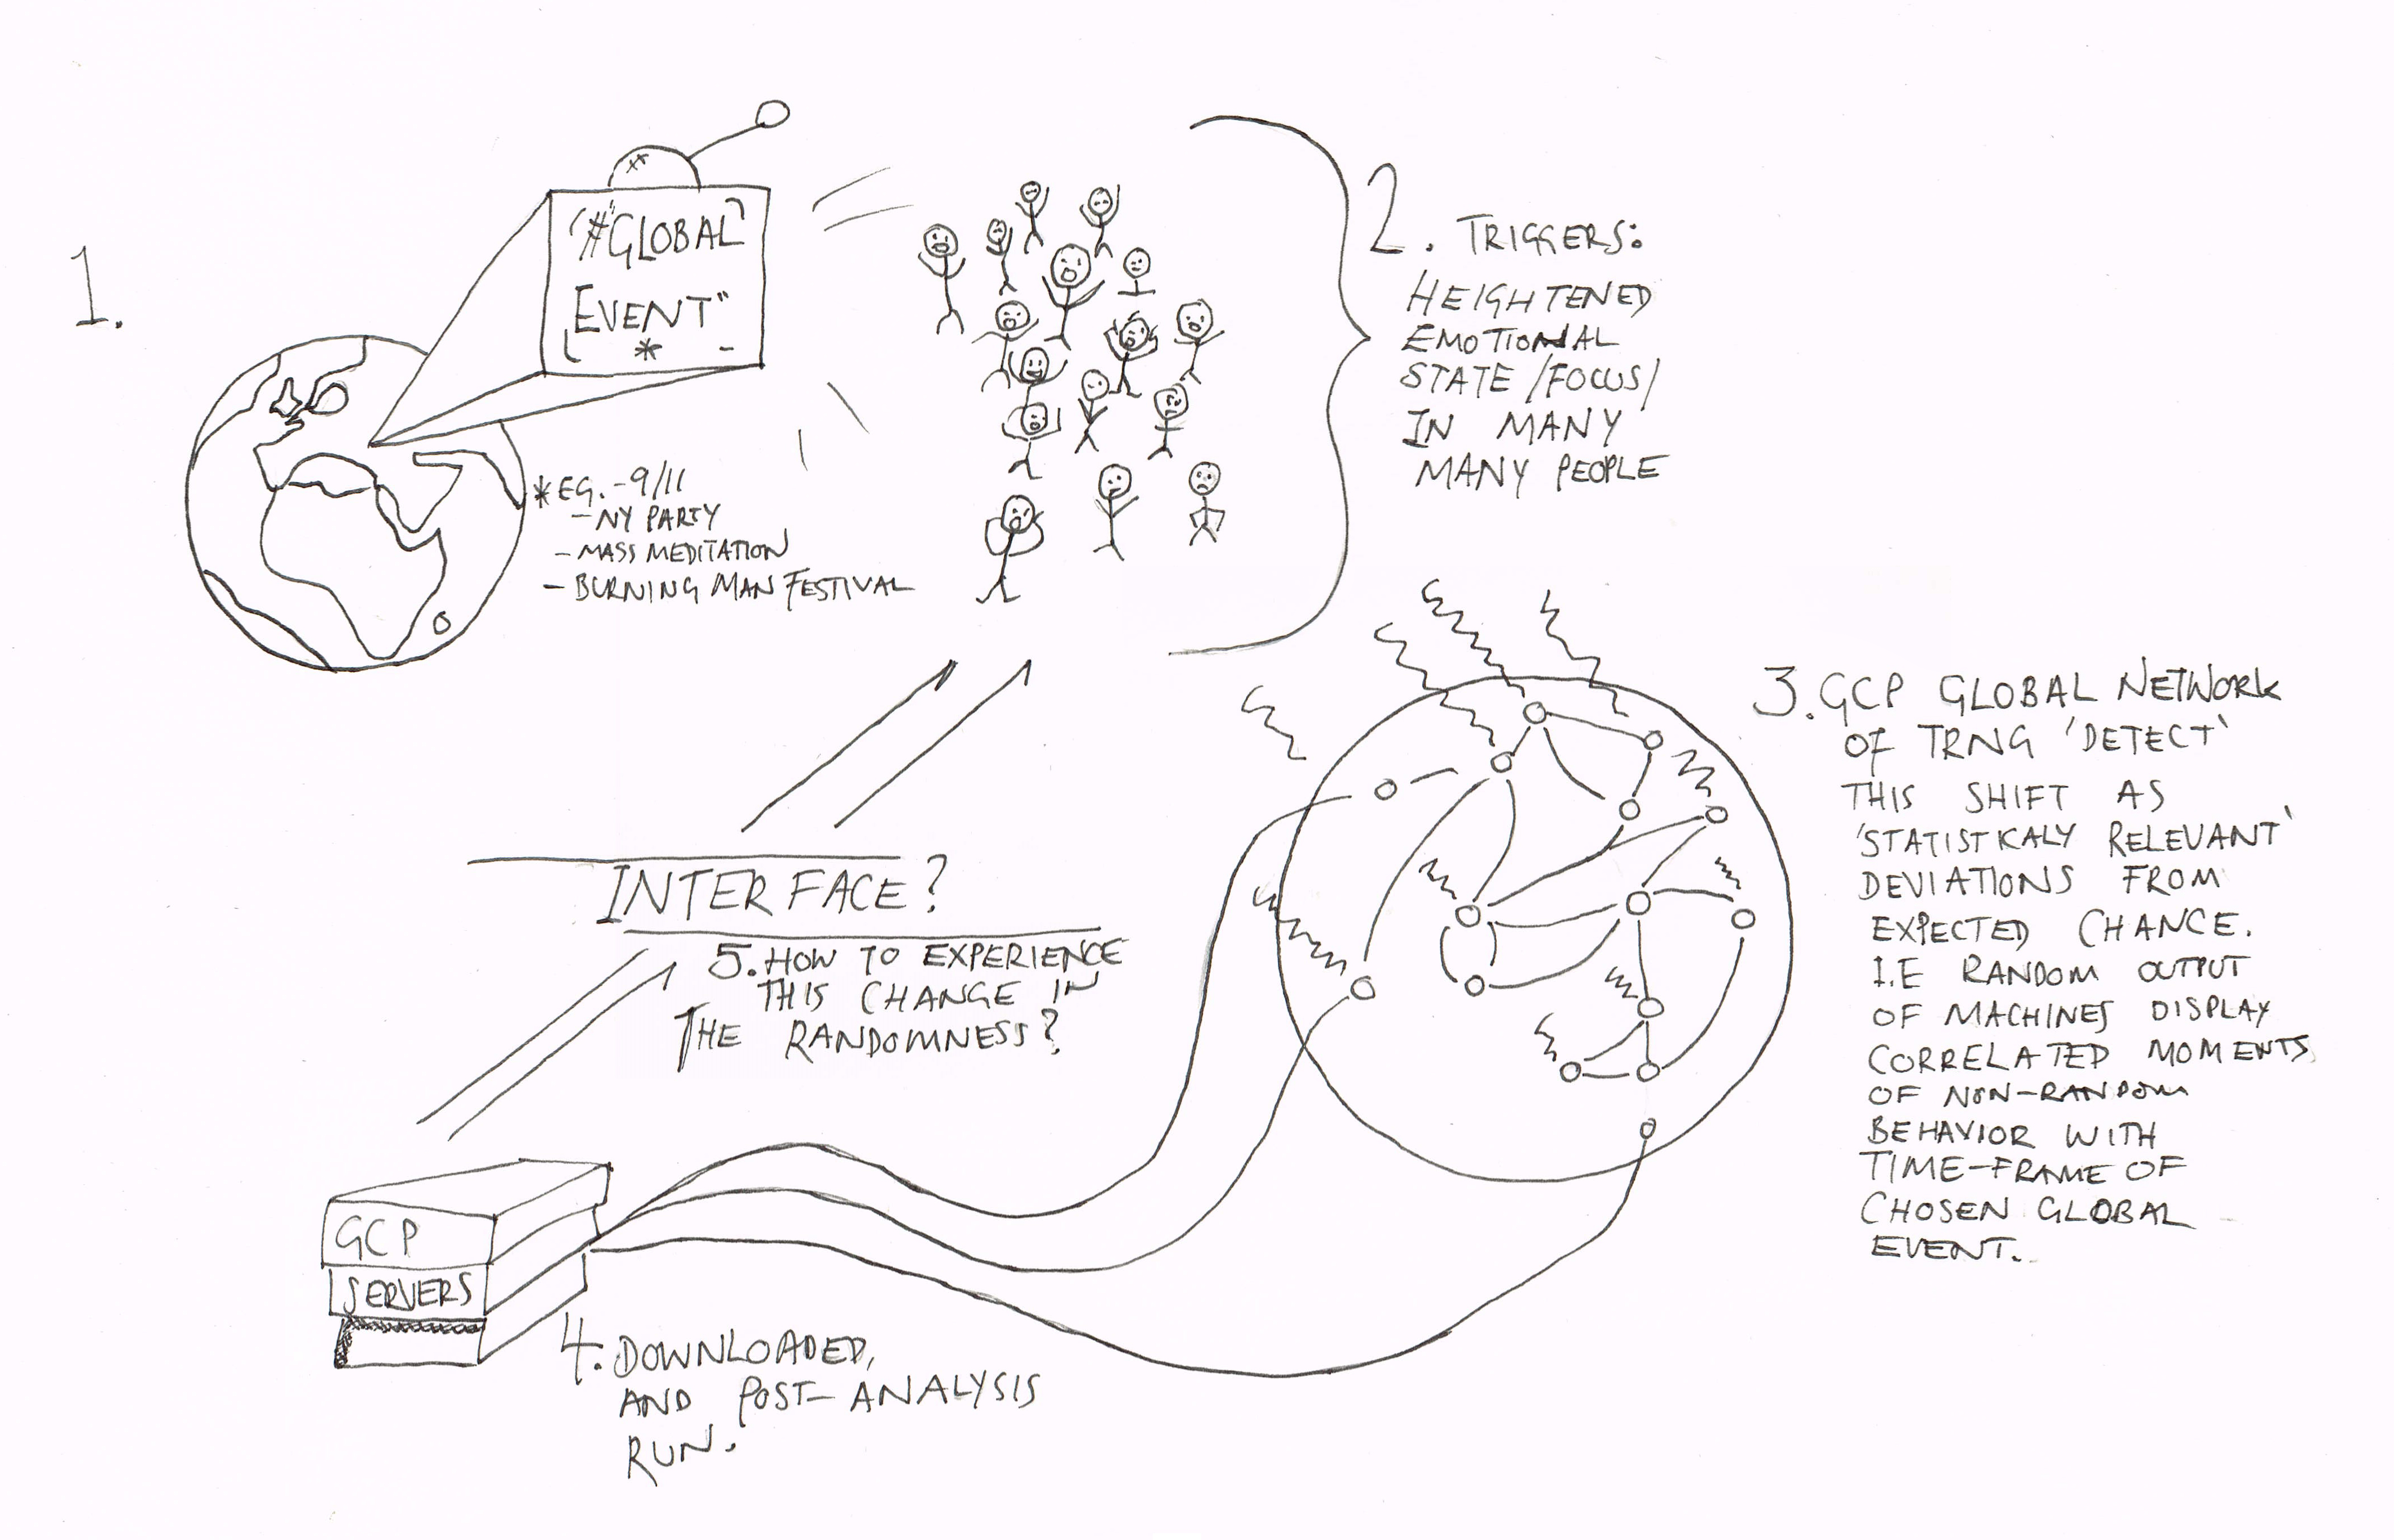 1.
"#GLOBAL
EVENT"
*
*EG. - 9/11
- NY PARTY
- MASS MEDITATION
- BURNING MAN FESTIVAL
2. TRIGGERS:
HEIGHTENED
EMOTIONAL
STATE /FOCUS/
IN MANY
MANY PEOPLE
3. GCP GLOBAL NETWORK
OF TRNG 'DETECT'
THIS SHIFT AS
'STATISTKALY RELEVANT'
DEVIATIONS FROM
EXPECTED CHANCE.
I.E RANDOM OUTPUT
OF MACHINES DISPLAY
CORRELATED MOMENTS
OF NON-RANDOM
BEHAVIOR WITH
TIME-FRAME OF
CHOSEN GLOBAL
EVENT.
GCP
SERVERS
4. DOWNLOADED,
AND POST-ANALYSIS
RUN.
INTERFACE?
5. HOW TO EXPERIENCE
THIS CHANGE IN
THE RANDOMNESS?